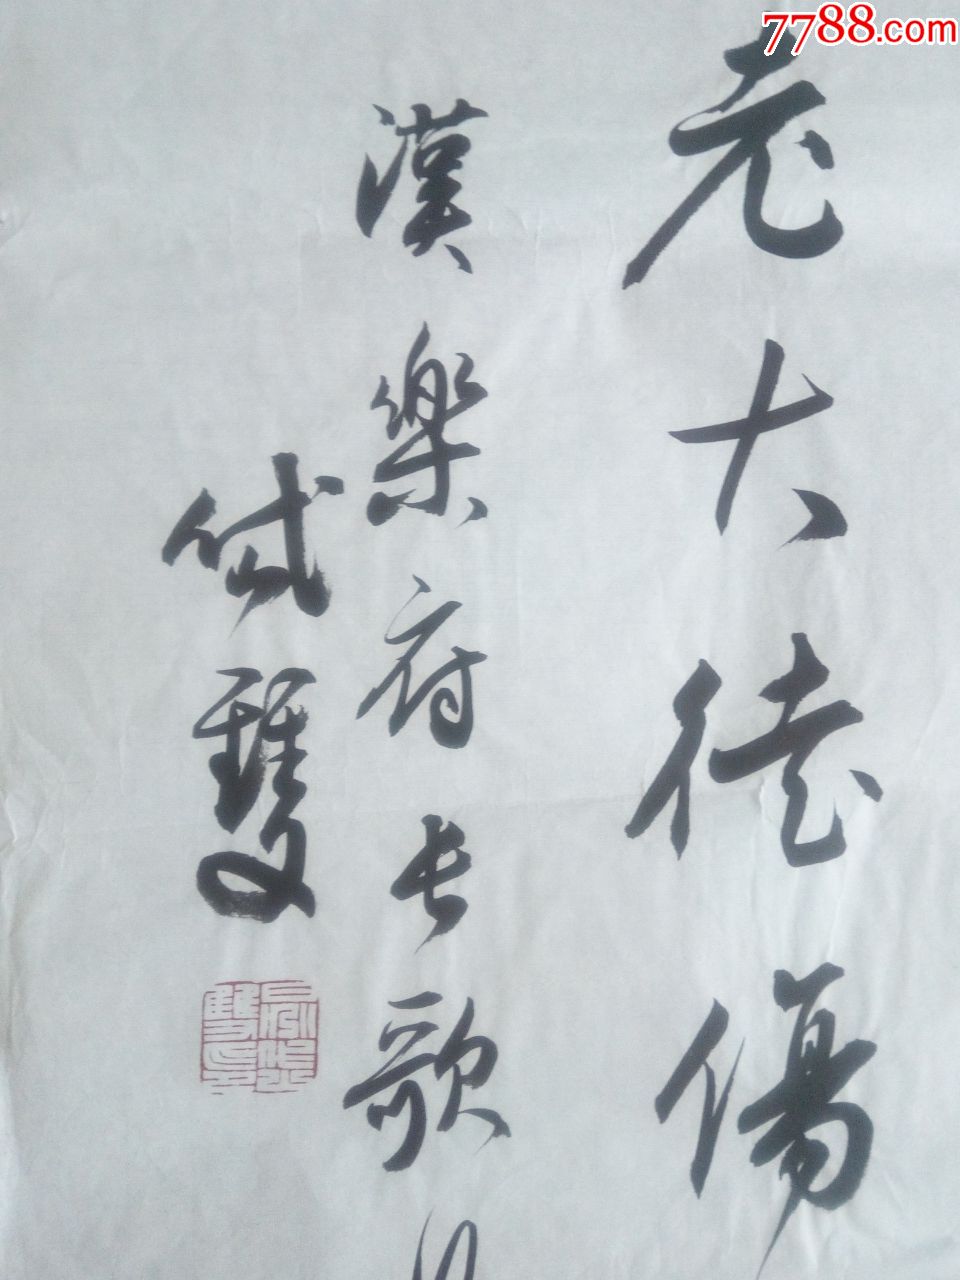 7788.com
老大徒傷
漢樂府長歌
岱雙